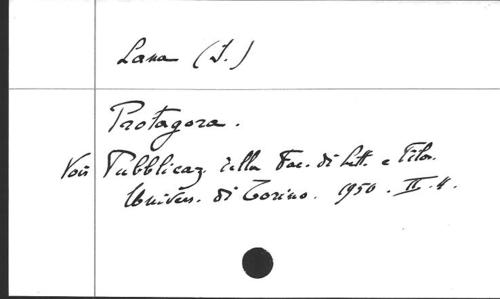 Lana (I.)
Protagora.
Voir Pubblicaz. della Fac. di Lett. e Filos.
Univers. di Torino. 1950. II. 4.